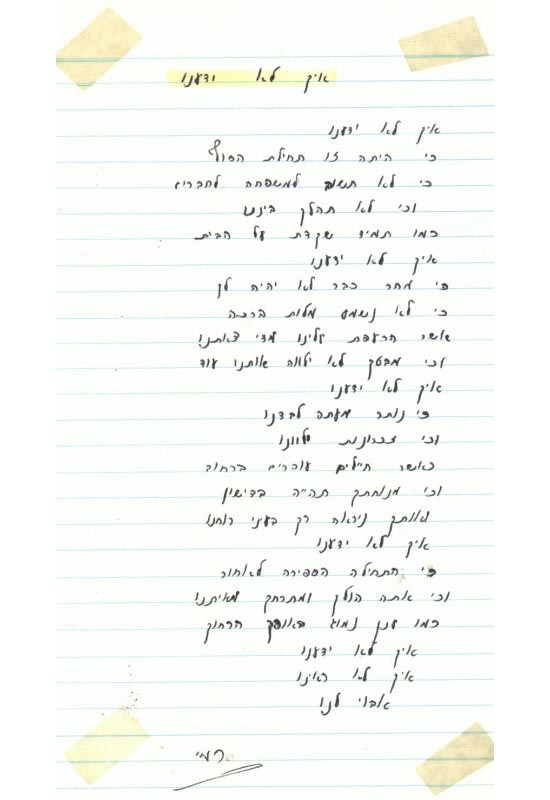 איך לא ידענו
איך לא ידענו
כי היתה זו תחילת הסוף
כי לא תשוב למשפחה לחבריא
וכי לא תהלך ביננו
כמו תמיד שקדת על הבית
איך לא ידענו
כי מחר כבר לא יהיה לך
כי לא נשמע מלות ברכה
אשר הרעפת עלינו מדי צאתנו
וכי מבטך לא ילווה אותנו עוד
איך לא ידענו
כי נותר מעתה לבדנו
וכי זכרונות ילוונו
כאשר חיילים עוברים ברחוב
וכי מנוחתך תהיה בדישון
ואותך ניראה רק בעיני רוחנו
איך לא ידענו
כי התחילה הספירה לאחור
וכי אתה הולך ומתרחק מאיתנו
כמו ענן נמוג באופק הרחוק
איך לא ידענו
איך לא ראינו
אבוי לנו
רמי